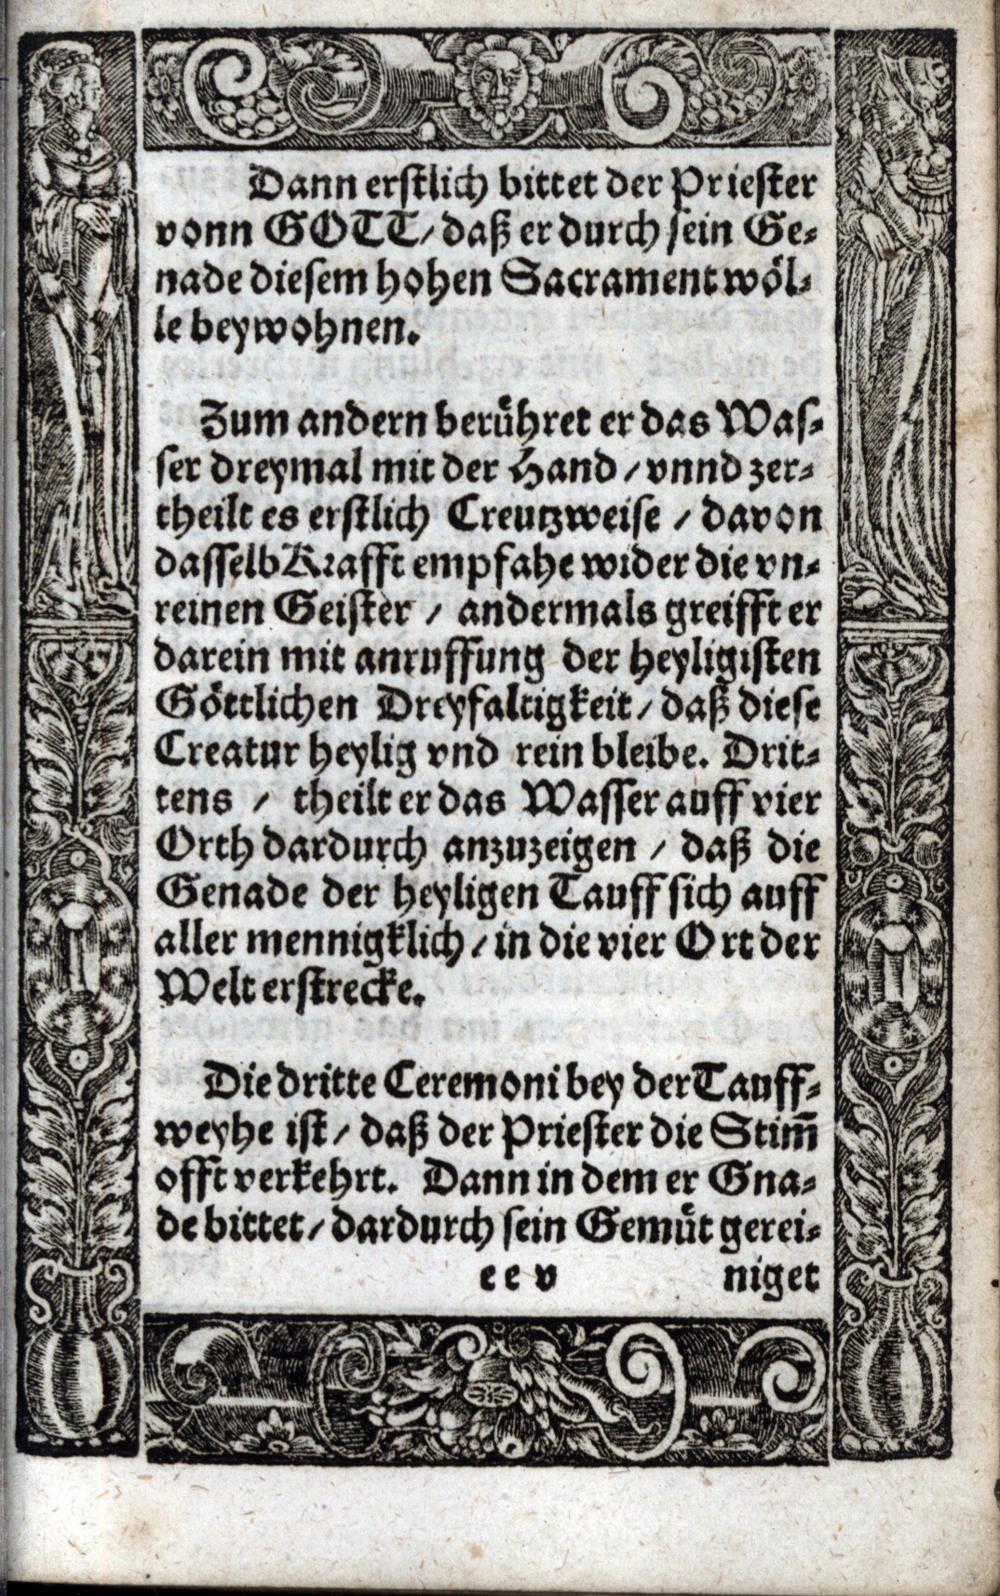 Dann erstlich bittet der Priester
vonn GOTT/ daß er durch sein Ge-
nade diesem hohen Sacrament wöl-
le beywohnen.
Zum andern berühret er das Was-
ser dreymal mit der Hand / vnnd zer-
theilt es erstlich Creutzweise / davon
dasselb Krafft empfahe wider die vn-
reinen Geister / andermals greifft er
darein mit anruffung der heyligisten
Göttlichen Dreyfaltigkeit / daß diese
Creatur heylig vnd rein bleibe. Drit-
tens / theilt er das Wasser auff vier
Orth dardurch anzuzeigen / daß die
Genade der heyligen Tauff sich auff
aller mennigklich / in die vier Ort der
Welt erstrecke.
Die dritte Ceremoni bey der Tauff-
weyhe ist / daß der Priester die Stim̄
offt verkehrt. Dann in dem er Gna-
de bittet / dardurch sein Gemüt gerei-
e e v niget